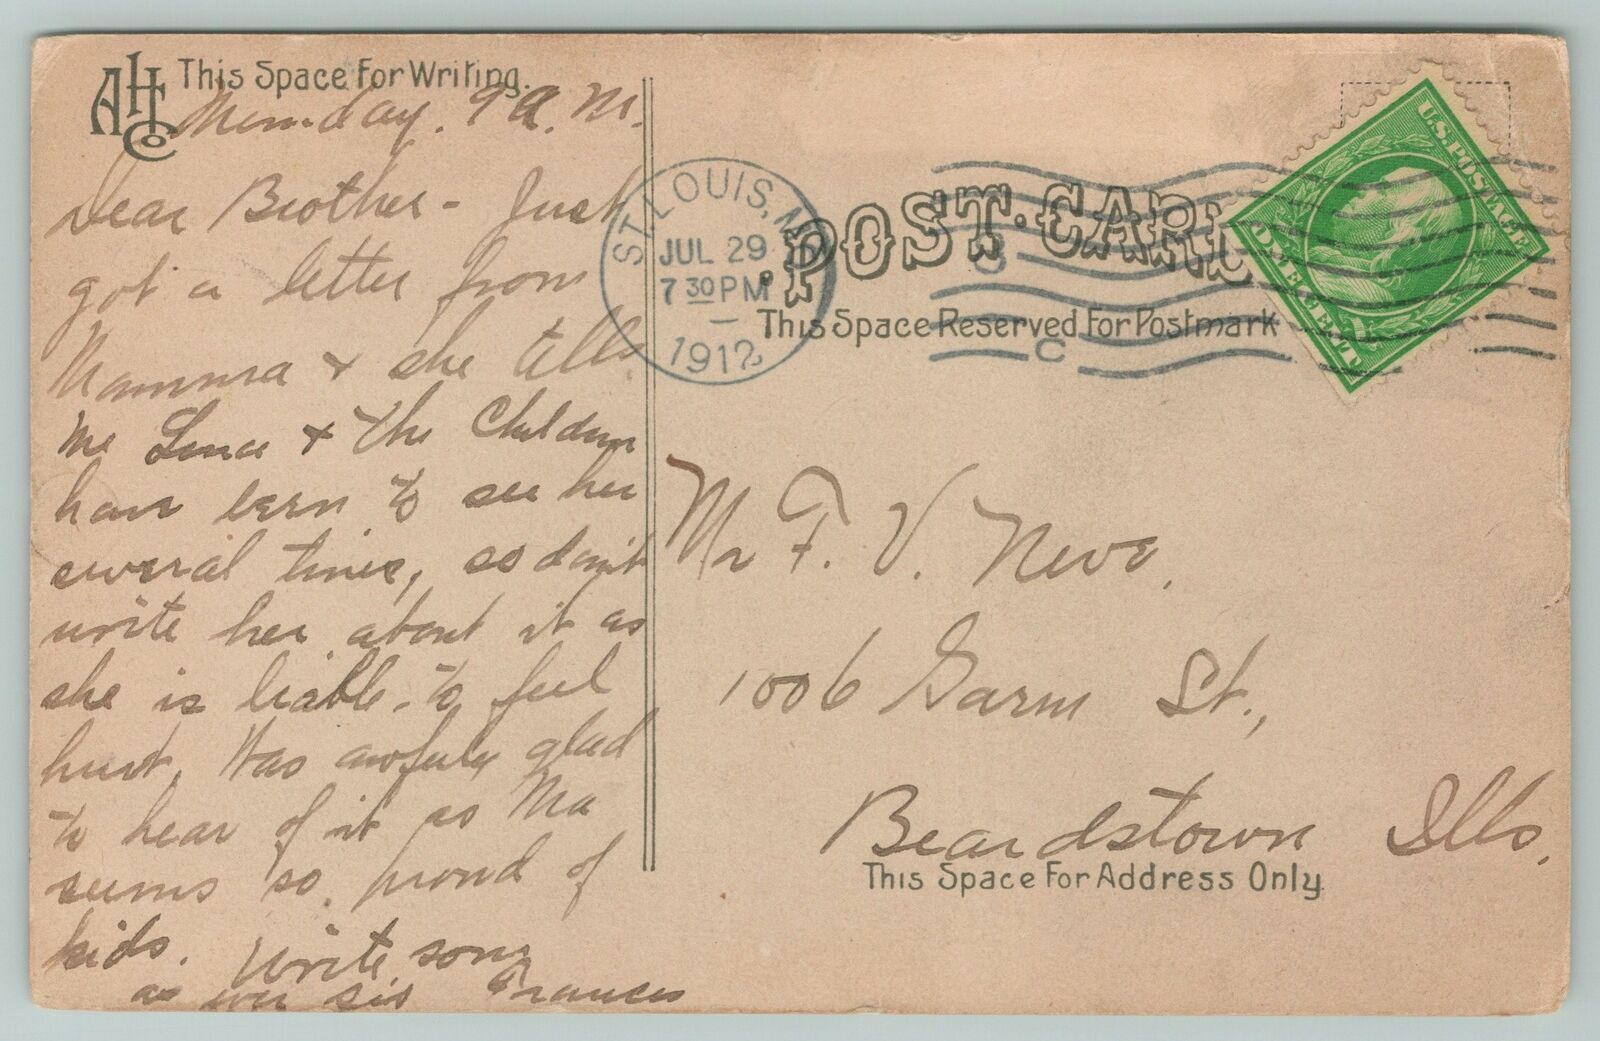 AHCo
This Space For Writing.
Monday. 9 A.M.
Dear Brother - Just
got a letter from
Mamma + she tells
me Lena + the Children
have been to see her
several times, so don't
write her about it as
she is liable to feel
hurt. Was awfuly glad
to hear of it as Ma
seems so proud of
kids. Write soon
as ever sis Frances
ST. LOUIS, MO.
JUL 29
7 30 PM
1912
POST CARD
This Space Reserved For Postmark
C
U.S. POSTAGE
1
ONE CENT
Mr F. V. Neve.
1006 Garm St.,
Beardstown Ills.
This Space For Address Only.